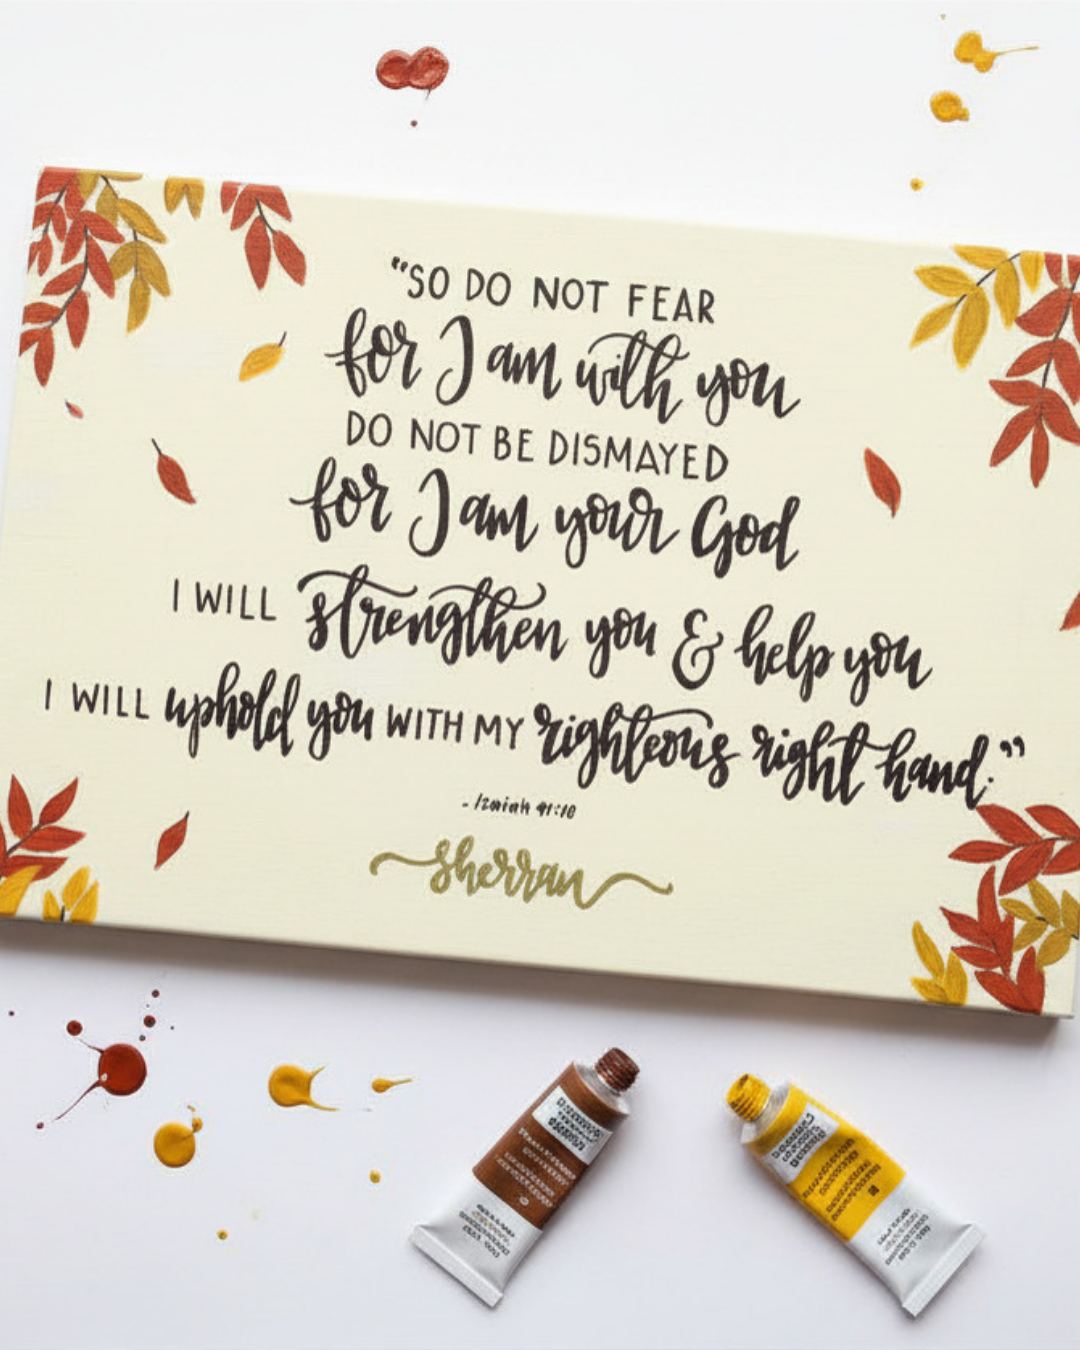 “SO DO NOT FEAR
for I am with you
DO NOT BE DISMAYED
for I am your God
I WILL strengthen you & help you
I WILL uphold you WITH MY righteous right hand.”
- Izaiah 41:10
sherran